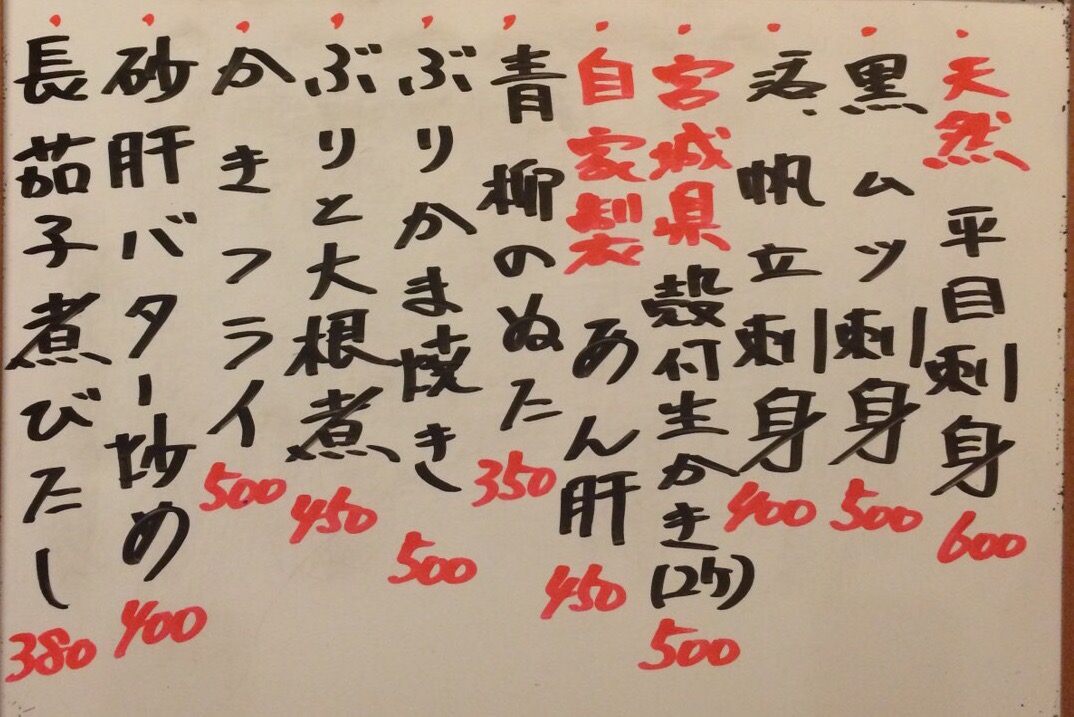 天然 平目刺身 600
黒ムツ刺身 500
活帆立刺身 400
宮城県 殻付生かき(2ケ) 500
自家製 あん肝 450
青柳のぬた 350
ぶりかま焼き 500
ぶりと大根煮 450
かきフライ 500
砂肝バター炒め 400
長茄子煮びたし 380